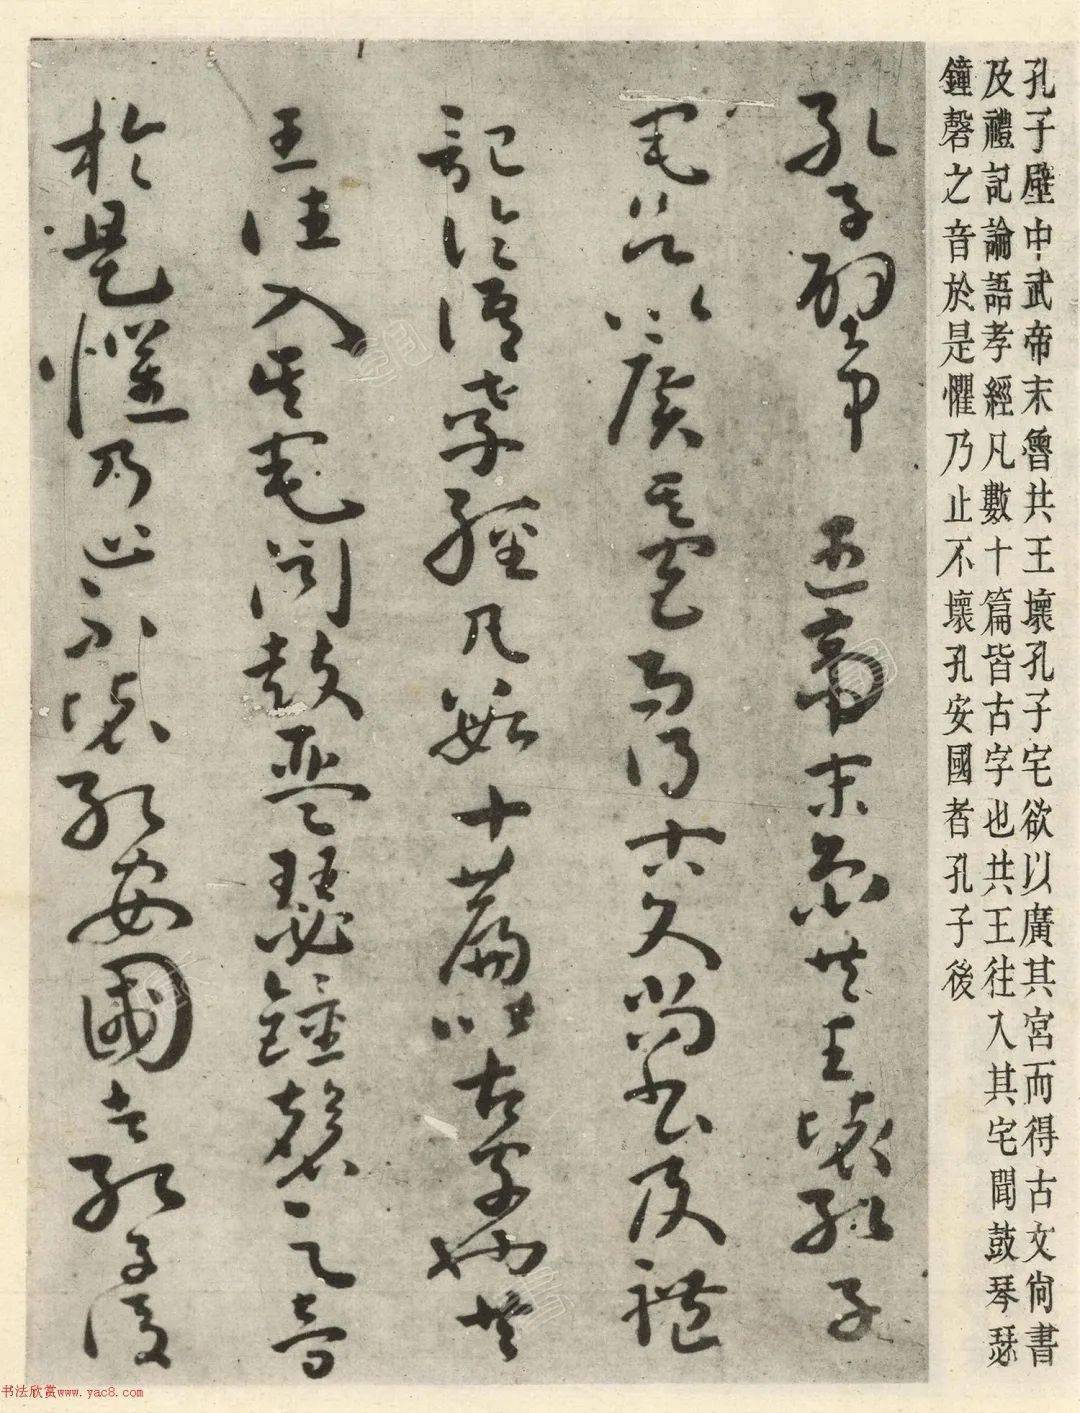 孔子壁中武帝末魯共王壞孔子宅欲以廣其宮而得古文尙書
及禮記論語孝經凡數十篇皆古字也共王往入其宅聞鼓琴瑟
鐘磬之音於是懼乃止不壞孔安國者孔子後
孔子壁中 武帝末魯共王壞孔子
宅欲以廣其宮而得古文尚書及禮
記論語孝經凡數十篇皆古字也共
王往入其宅聞鼓琴瑟鐘磬之音
於是懼乃止不壞孔安國者孔子後
书法欣赏www.yac8.com